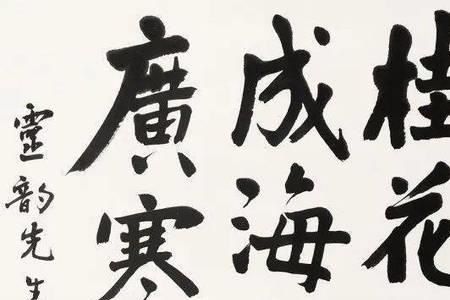 桂花
成海
廣寒
靈韵先生